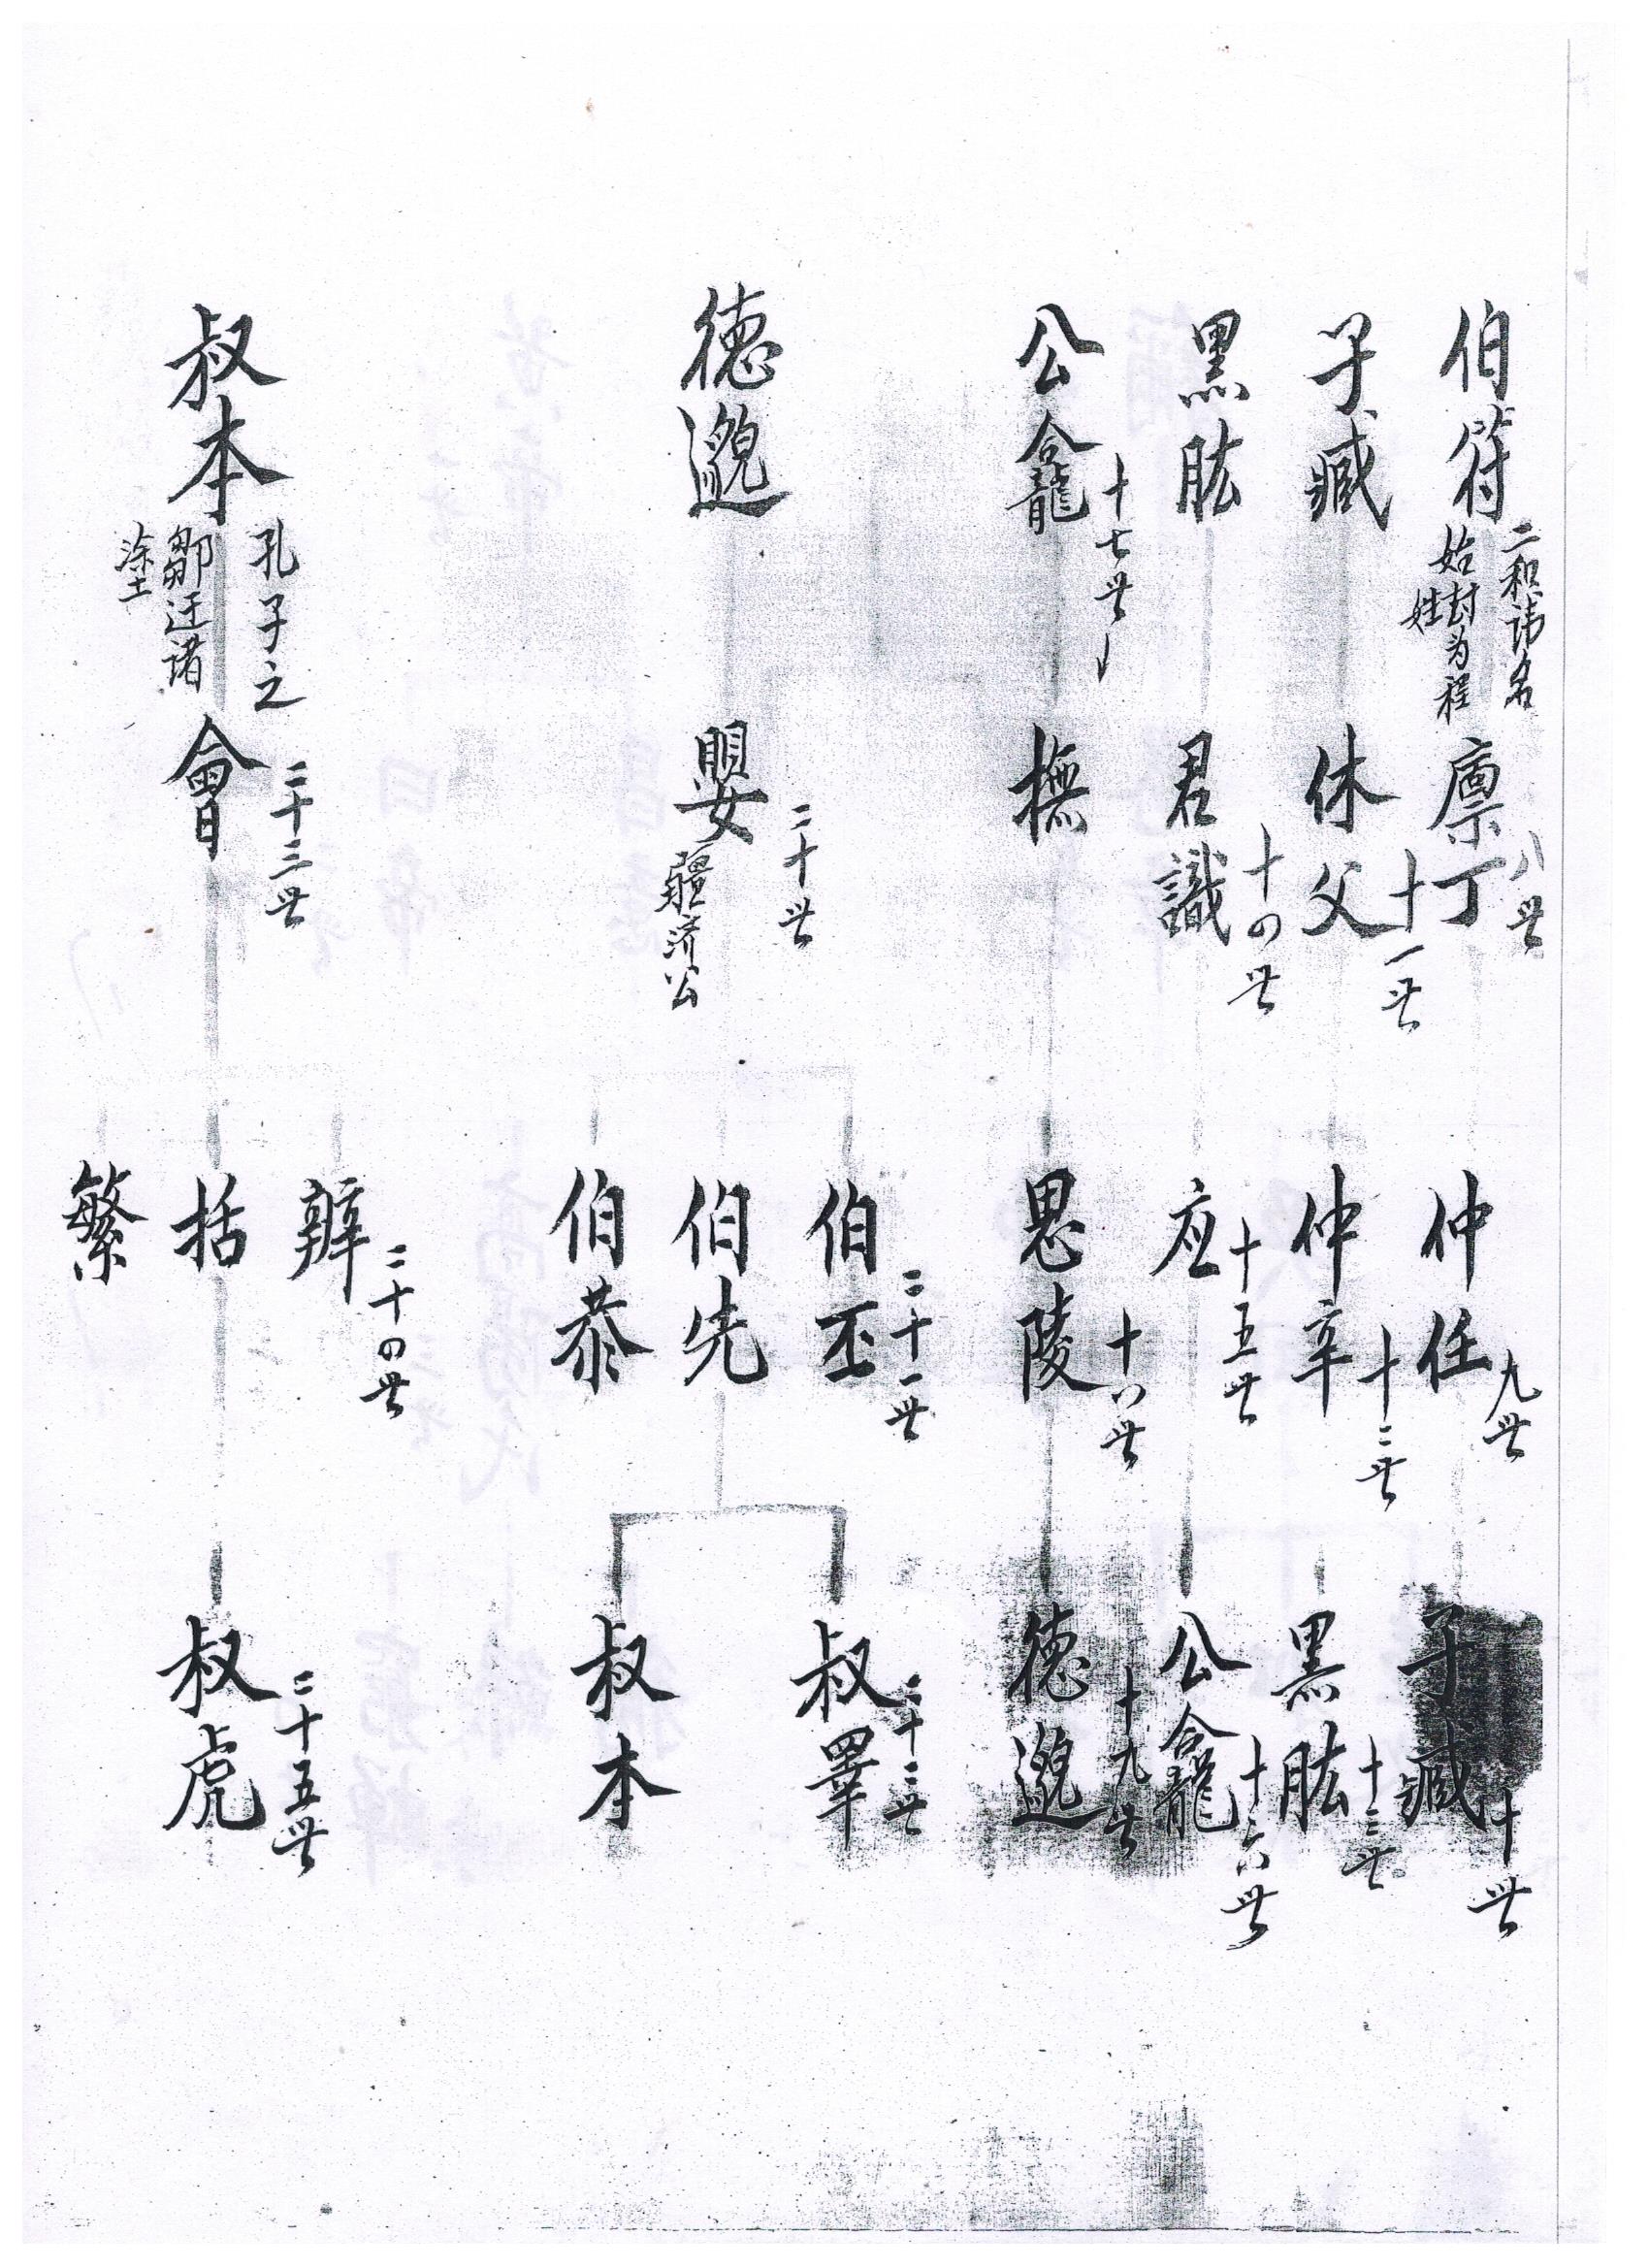 伯符
二和讳名
始封为程
姓
廩丁
八世
仲任
九世
子臧
十世
子臧
休父
十一世
仲辛
十二世
黑肱
十三世
黑肱
君識
十四世
应
十五世
公龕
十六世
公龕
十七世
撫
思陵
十八世
德邈
十九世
德邈
嬰
二十世
疆济公
伯丕
二十一世
伯先
伯恭
叔睪
二十二世
叔本
叔本
孔子之
鄒迂诸
涂
會
二十三世
辨
二十四世
括
繁
叔虎
二十五世